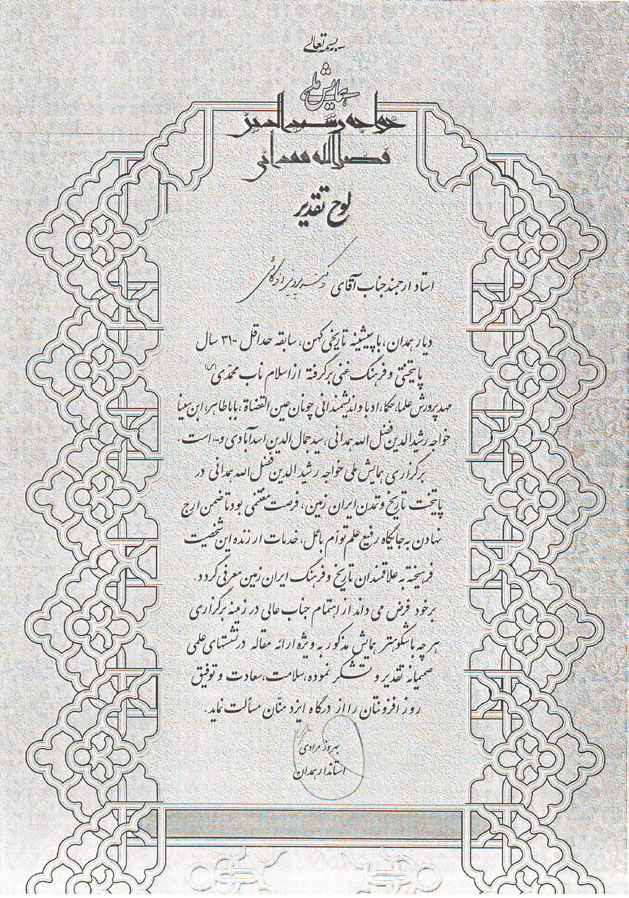 بسمه تعالی
همایش ملی
خواجه رشیدالدین
فضل الله همدانی
لوح تقدیر
استاد ارجمند جناب آقای دکتر پرویز اذکائی
دیار همدان، با پیشینه تاریخی کهن، سابقه حداقل ۳۱۰۰ سال
پایتختی و فرهنگ غنی برگرفته از اسلام ناب محمدی (ص)
مهد پرورش علما، حکما، ادبا و اندیشمندانی چونان عین القضاة، باباطاهر، ابن سینا
خواجه رشیدالدین فضل الله همدانی، سید جمال الدین اسدآبادی و... است.
برگزاری همایش ملی خواجه رشیدالدین فضل الله همدانی در
پایتخت تاریخ و تمدن ایران زمین، فرصت مغتنمی بود تا ضمن ارج
نهادن به جایگاه رفیع علم توأم باعمل، خدمات ارزنده این شخصیت
فرهیخته به علاقمندان تاریخ و فرهنگ ایران زمین معرفی گردد.
برخود فرض می داند از اهتمام جناب عالی در زمینه برگزاری
هرچه باشکوهتر همایش مذکور به ویژه ارائه مقاله در نشستهای علمی
صمیمانه تقدیر و تشکر نموده، سلامت، سعادت و توفیق
روزافزونتان را از درگاه ایزد منان مسألت نماید.
بهروز مرادی
استاندار همدان